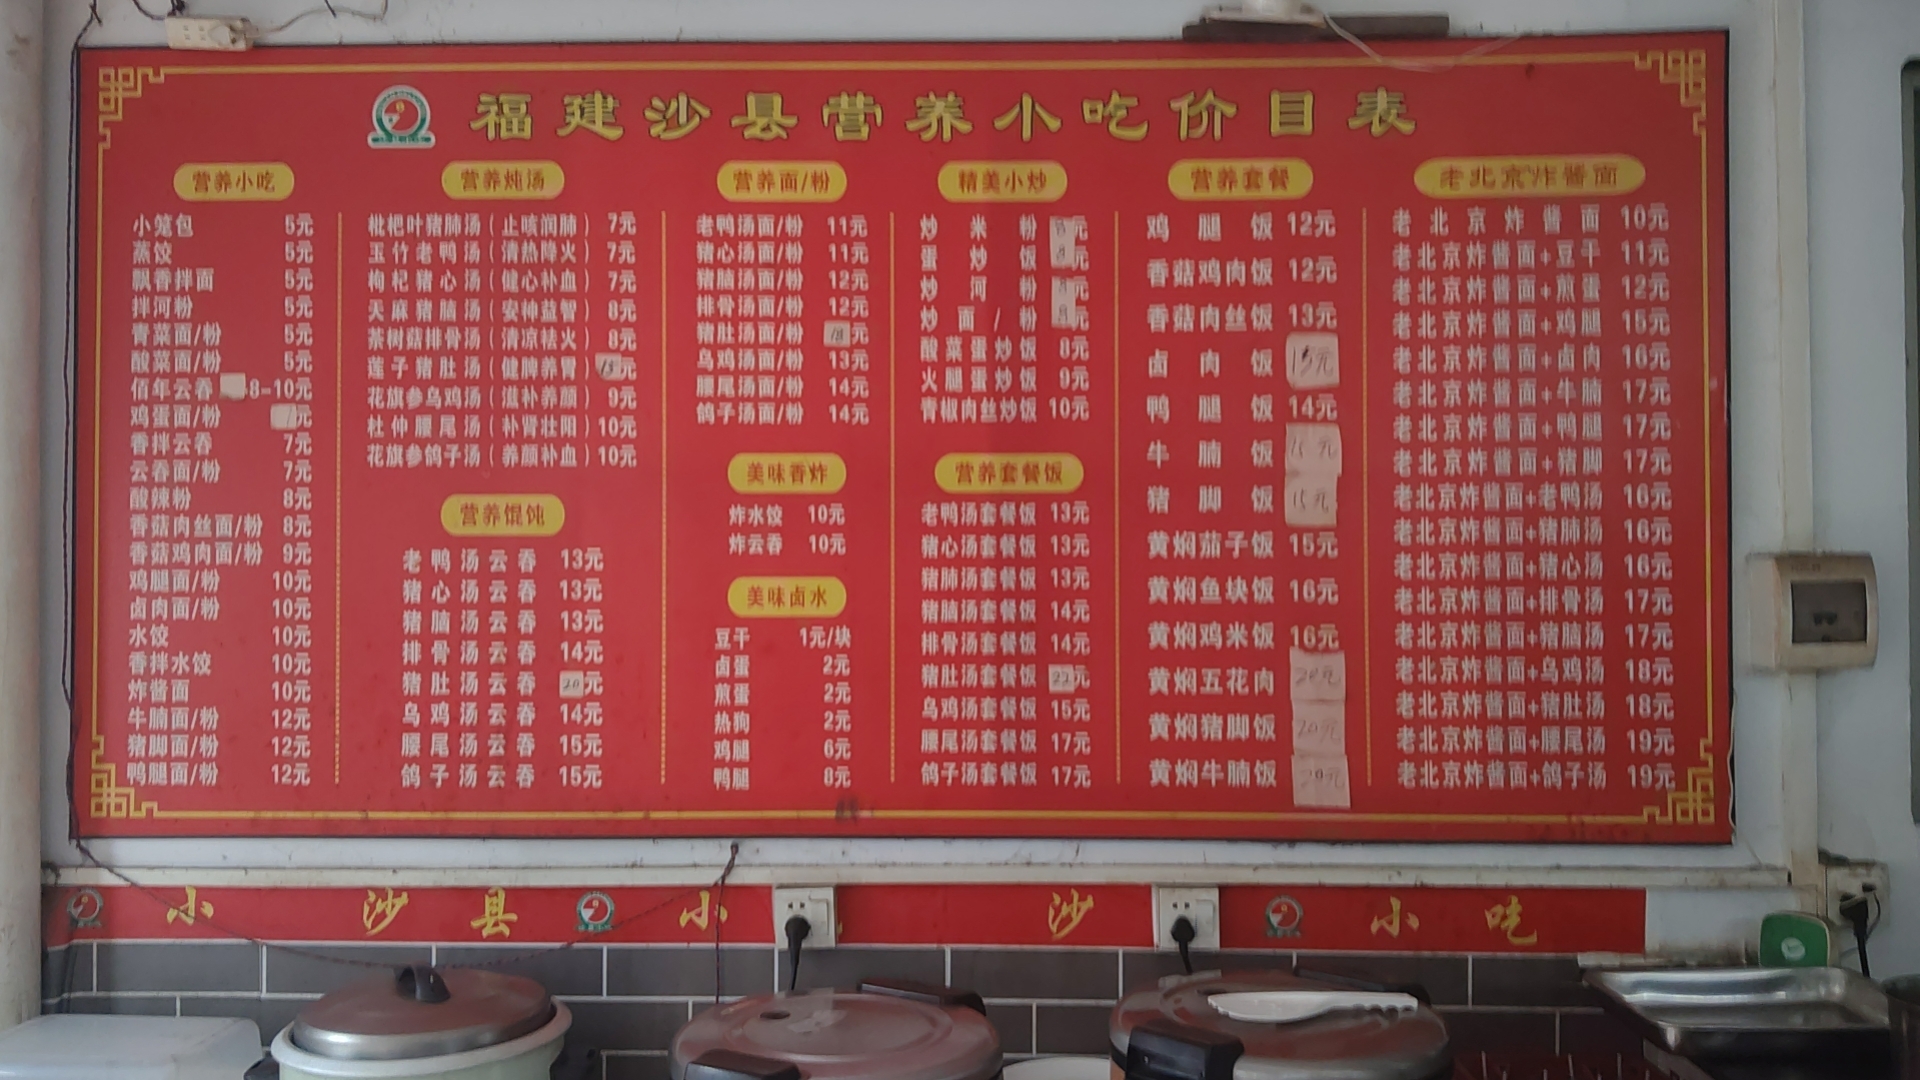 福建沙县营养小吃价目表
营养小吃
小笼包 5元
蒸饺 5元
飘香拌面 5元
拌河粉 5元
青菜面/粉 5元
酸菜面/粉 5元
佰年云吞 8-10元
鸡蛋面/粉 元
香拌云吞 7元
云吞面/粉 7元
酸辣粉 8元
香菇肉丝面/粉 8元
香菇鸡肉面/粉 9元
鸡腿面/粉 10元
卤肉面/粉 10元
水饺 10元
香拌水饺 10元
炸酱面 10元
牛腩面/粉 12元
猪脚面/粉 12元
鸭腿面/粉 12元
营养炖汤
枇杷叶猪肺汤(止咳润肺) 7元
玉竹老鸭汤(清热降火) 7元
枸杞猪心汤(健心补血) 7元
天麻猪脑汤(安神益智) 8元
茶树菇排骨汤(清凉祛火) 8元
莲子猪肚汤(健脾养胃) 15元
花旗参乌鸡汤(滋补养颜) 9元
杜仲腰尾汤(补肾壮阳) 10元
花旗参鸽子汤(养颜补血) 10元
营养馄饨
老鸭汤云吞 13元
猪心汤云吞 13元
猪脑汤云吞 13元
排骨汤云吞 14元
猪肚汤云吞 20元
乌鸡汤云吞 14元
腰尾汤云吞 15元
鸽子汤云吞 15元
营养面/粉
老鸭汤面/粉 11元
猪心汤面/粉 11元
猪脑汤面/粉 12元
排骨汤面/粉 12元
猪肚汤面/粉 18元
乌鸡汤面/粉 13元
腰尾汤面/粉 14元
鸽子汤面/粉 14元
美味香炸
炸水饺 10元
炸云吞 10元
美味卤水
豆干 1元/块
卤蛋 2元
煎蛋 2元
热狗 2元
鸡腿 6元
鸭腿 8元
精美小炒
炒米粉 元
蛋炒饭 元
炒河粉 元
炒面/粉 元
酸菜蛋炒饭 8元
火腿蛋炒饭 9元
青椒肉丝炒饭 10元
营养套餐饭
老鸭汤套餐饭 13元
猪心汤套餐饭 13元
猪肺汤套餐饭 13元
猪脑汤套餐饭 14元
排骨汤套餐饭 14元
猪肚汤套餐饭 22元
乌鸡汤套餐饭 15元
腰尾汤套餐饭 17元
鸽子汤套餐饭 17元
营养套餐
鸡腿饭 12元
香菇鸡肉饭 12元
香菇肉丝饭 13元
卤肉饭 15元
鸭腿饭 14元
牛腩饭 15元
猪脚饭 15元
黄焖茄子饭 15元
黄焖鱼块饭 16元
黄焖鸡米饭 16元
黄焖五花肉 20元
黄焖猪脚饭 20元
黄焖牛腩饭 20元
老北京炸酱面
老北京炸酱面 10元
老北京炸酱面+豆干 11元
老北京炸酱面+煎蛋 12元
老北京炸酱面+鸡腿 15元
老北京炸酱面+卤肉 16元
老北京炸酱面+牛腩 17元
老北京炸酱面+鸭腿 17元
老北京炸酱面+猪脚 17元
老北京炸酱面+老鸭汤 16元
老北京炸酱面+猪肺汤 16元
老北京炸酱面+猪心汤 16元
老北京炸酱面+排骨汤 17元
老北京炸酱面+猪脑汤 17元
老北京炸酱面+乌鸡汤 18元
老北京炸酱面+猪肚汤 18元
老北京炸酱面+腰尾汤 19元
老北京炸酱面+鸽子汤 19元
小 沙县 小 沙 小吃